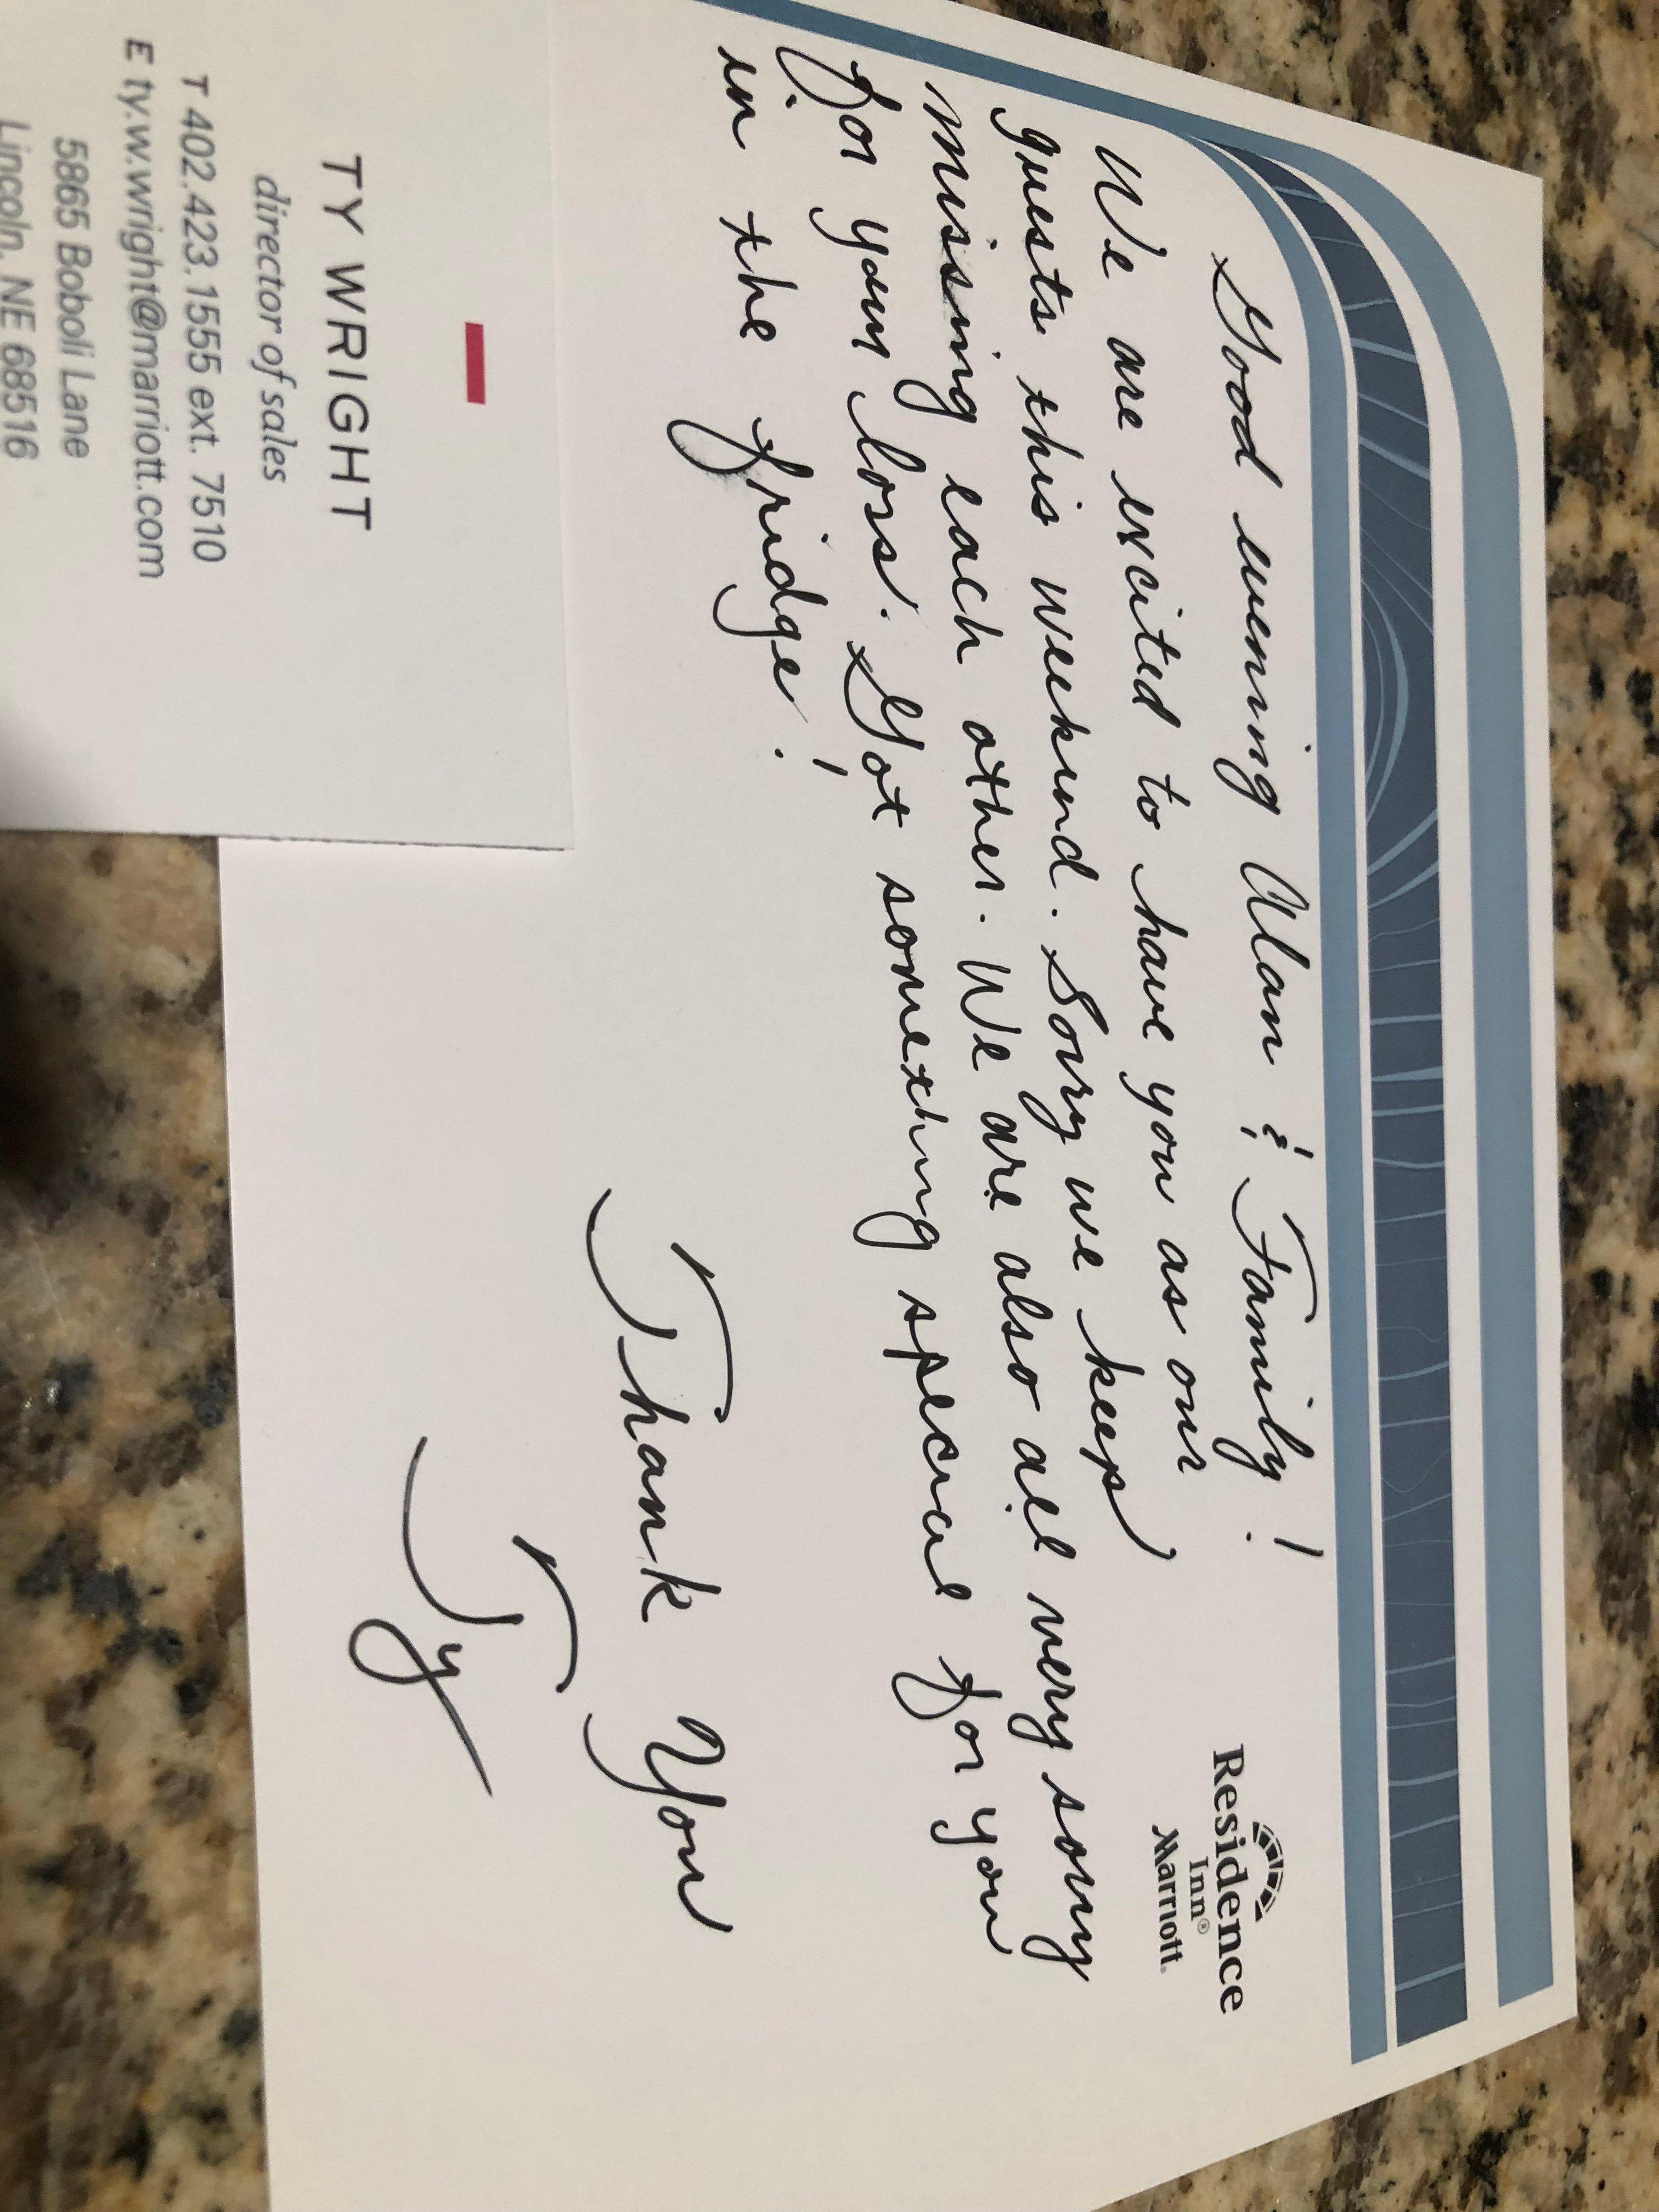 Residence
Inn®
Marriott.
Good evening Alan & Family!
We are excited to have you as our
guests this weekend. Sorry we keep
missing each other. We are also all very sorry
for your loss. Got something special for you
in the fridge!
Thank You
Ty
TY WRIGHT
director of sales
T 402.423.1555 ext. 7510
E ty.w.wright@marriott.com
5865 Boboli Lane
Lincoln, NE 68516